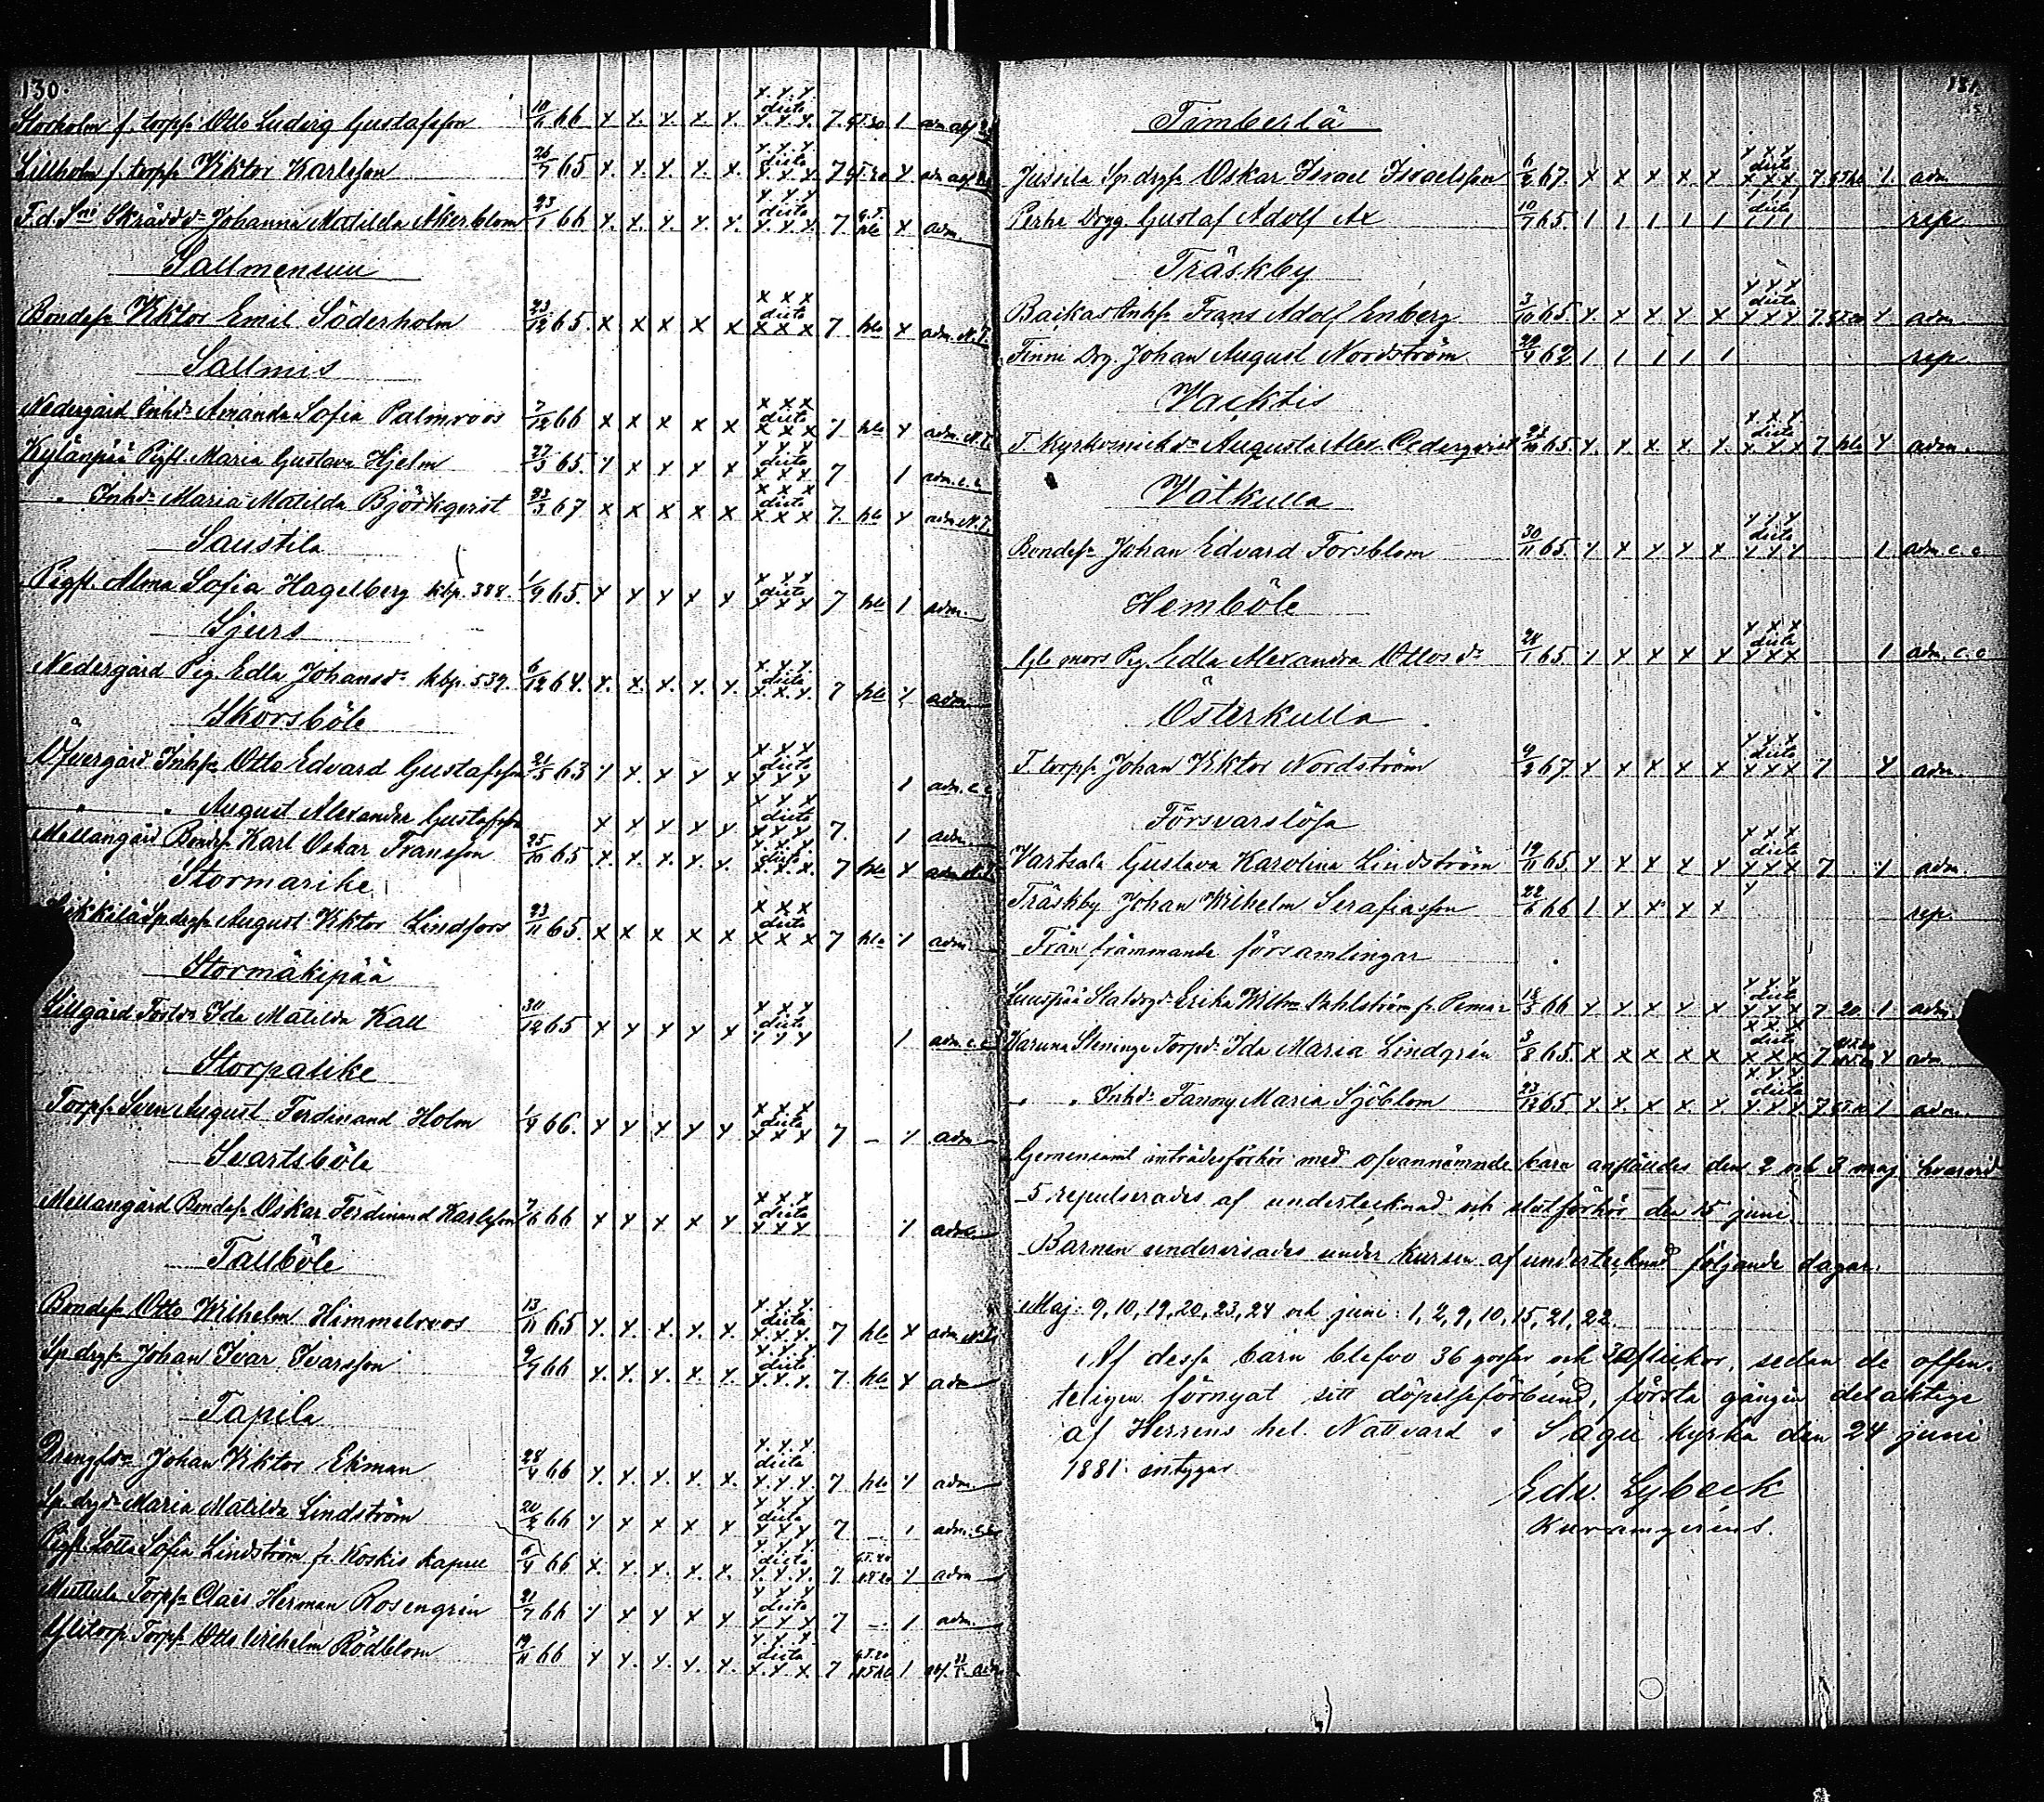 130.
Storholm f. torpss Otto Ludvig Gustafsson 10/6 66 x x. x. x. x. x.x.x. dicta x.x.x. 7. 1 adm
Lillholm f. torpss Viktor Karlsson 26/7 65 x. x. x. x. x. x.x.x. dicta x.x.x. 7 x adm
F.d. Sni Skrädd dr Johanna Matilda Åkerblom 23/1 66 x. x. x. x. x. x.x.x. dicta x.x.x. 7 hla x adm.
Sallmensuu
Bondess Viktor Emil Söderholm 23/12 65 x x x x x x x x dicta x x x 7 hla x adm. N.T.
Sallmis
Nedergård Inhdr Amanda Sofia Palmroos 7/12 66 x x x x x x x x dicta x x x 7 hla x adm. N.T.
Kylänpää Pigfl. Maria Gustava Hjelm 27/3 65. x x x x x x x x dicta x x x 7 1 adm. c.c.
" Inhdr Maria Matilda Björkqvist 23/3 67 x x x x x x x x dicta x x x 7. hla x adm N.T.
Saustila
Pigfl. Alma Sofia Hagelberg kbp. 388. 1/9 65. x x x x x x x x dicta x x x 7 hla 1 adm.
Sjurs
Nedergård Pig. Edla Johansdr kbp. 539. 6/12 64. x. x. x. x. x. x.x.x. dicta x.x.x. 7 hla x adm.
Skörsböle
Öfvergård Inhss Otto Edvard Gustafsson 21/5 63 x x. x x x x x x dicta x x x 1 adm. c.c.
" " August Alexander Gustafsson x x x x x x x x dicta x x x 7. 1 adm
Mellangård Bondss Karl Oskar Fransson 25/10 65 x. x. x. x. x. x.x.x. dicta x.x.x. 7 hla x adm N.T.
Stormarike
Sp.drgss August Viktor Lindfors 23/11 65. x x x x x x x x dicta x x x 7 hla x adm.
Stormäkipää
Lillgård Ida Matilda Kall 30/12 65 x x x x x x x x dicta x x x 1 adm c.c.
Storpatike
Torpss Sven August Ferdinand Holm 1/9 66. x x x x x x x x dicta x x x 7 – x adm
Svartsböle
Mellangård Bondess Oskar Ferdinand Karlsson 7/6 66 x x x x x x x x dicta x x x x adm.
Tallböle
Bondess Otto Wilhelm Himmelroos 13/11 65 x. x. x. x. x. x.x.x. dicta x.x.x. 7 hla x adm
Sp.drgss Johan Ivar Ivarsson 9/7 66 x. x. x. x. x. x.x.x. dicta x.x.x. 7 hla x adm
Tapila
Johan Viktor Ekman 28/4 66 x. x. x. x. x. x.x.x. dicta x.x.x. 7 hla x adm.
Sp.drgdr Maria Matilda Lindström 20/2 66 x x x x x x x x dicta x x x 7 – 1 adm.
Pigfl. Lotta Sofia Lindström fr. Koskis kapell 6/4 66 x. x. x. x. x. x.x.x. dicta x.x.x. 7 x adm
Torpss Claes Herman Rosengrén 21/7 66 x x x x x x x x dicta x x x 7 – 1 adm.
Ylitorp Torpss Otto Wilhelm Rödblom 19/11 66 x x. x. x. x. x.x.x. dicta x.x.x 7 1 adm
131.
Timberlä
Jussila Sp drgss Oskar Israel Israelsson 6/2 67. x x x x x x x x dicta x x x 7 1 adm
Perhe Drgg. Gustaf Adolf Ax 10/7 65. 1 1 1 1 1 dicta 1 1 1 rep.
Träskby
Baikas Inhss Frans Adolf Enberg 3/10 65 x x x x x x x x dicta x x x 7. x adm
Finni Drg. Johan August Nordström 29/4 62 1 1 1 1 1 rep
Vacktis
F. kyrkovickdr Augusta Alex. Cederqvist 28/10 65. x. x. x. x. x x.x.x. dicta x.x.x 7 hla x adm.
Vätkulla
Bondess Johan Edvard Forsblom 30/11 65. x x x x x x x x dicta x x x 1 adm. c.c
Hemböle
Gle mors Pig. Edla Alexandra Ottosdr 24/1 65. x x x x x x x x dicta x x x 1 adm. c.c
Österkulla
F. torpss Johan Viktor Nordström 9/2 67. x x x x x x x x dicta x x x 7 x adm.
Försvarslösa
Vartsala Gustava Karolina Lindström 19/11 65. x x x x x x x x dicta x x x 7 x adm.
Träskby Johan Wilhelm Serafiasson 22/6 66 1 x x x x x rep.
Från främmande församlingar
Statdrgdr Erika Wilhma Dahlström fr. Pemar 18/3 66 x x x x x x x x dicta x x x 7 20 1 adm.
Karuna Steninge Torpdr Ida Maria Lindgrén 3/8 65. x x x x x x x x dicta x x x 7 x adm
" " Inhdr Fanny Maria Sjöblom 23/12 65 x x. x x. x. x x x dicta x x x 7 1 adm.
Gemensamt inträdesförhör med ofvannämnde barn anställdes den 2 och 3 maj, hvarvid
5 repulserades af undertecknad och slutförhör den 15 juni.
Barnen undervisades under kursen af undertecknad följande dagar.
Maj: 9, 10, 19, 20, 23, 24 och juni: 1, 2, 9, 10, 15, 21, 22.
Af dessa barn blefvo 36 gossar och flickor, sedan de offen-
teligen förnyat sitt döpelseförbund, första gången delaktige
af Herrens hel. Nattvard i Sagu kyrka den 24 juni
1881. intygar
Edv. Lybeck